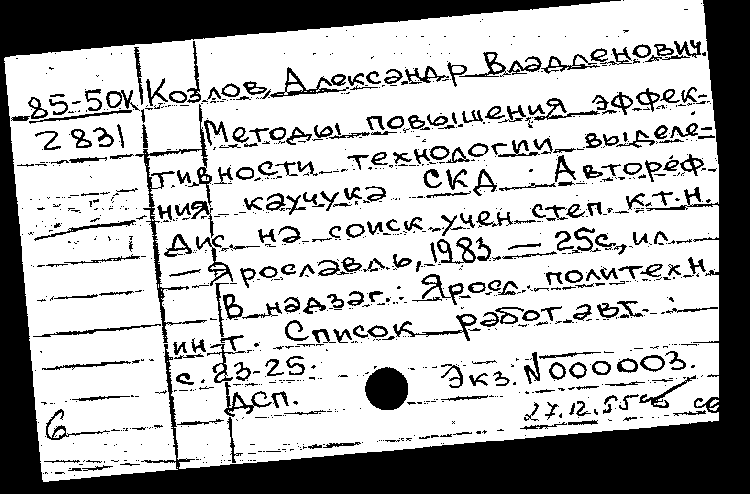 85-50К Козлов, Александр Владленович.
2831 Методы повышения эффек-
тивности технологии выделе-
ния каучука СКД : Автореф.
Дис. на соиск. учен степ. к.т.н.
— Ярославль, 1983 — 25с., ил.
В надзаг.: Яросл. политехн.
ин-т. Список работ авт. :
с. 23-25.
Экз. N000003.
ДСП.
6
27.12.55